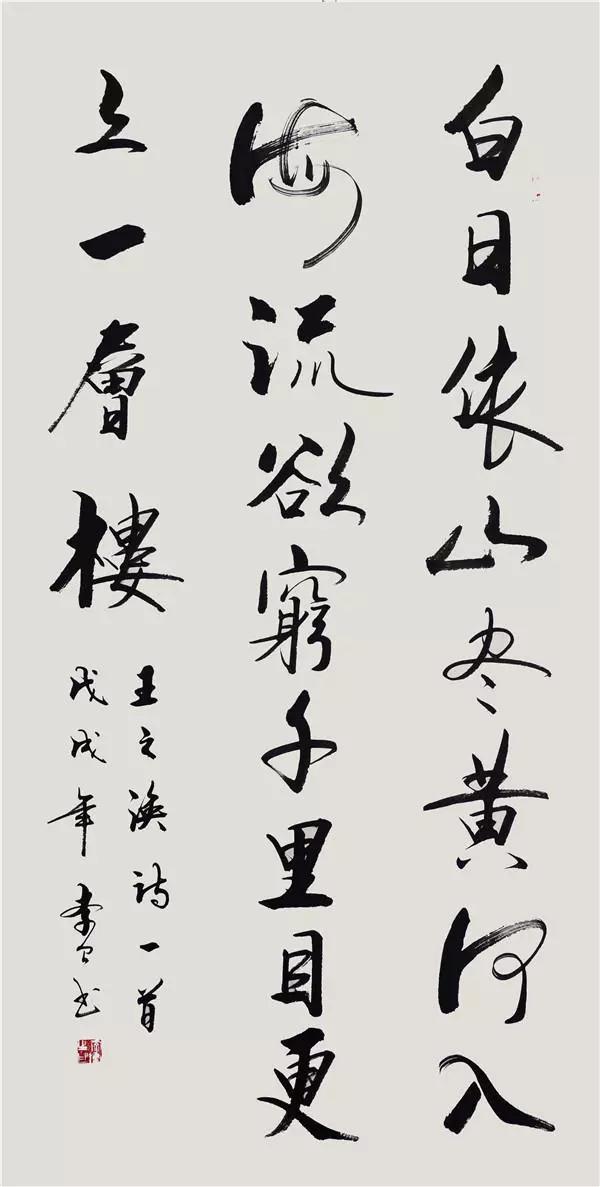 白日依山尽黄河入
海流欲窮千里目更
上一層樓
王之渙诗一首
戊戌年 书